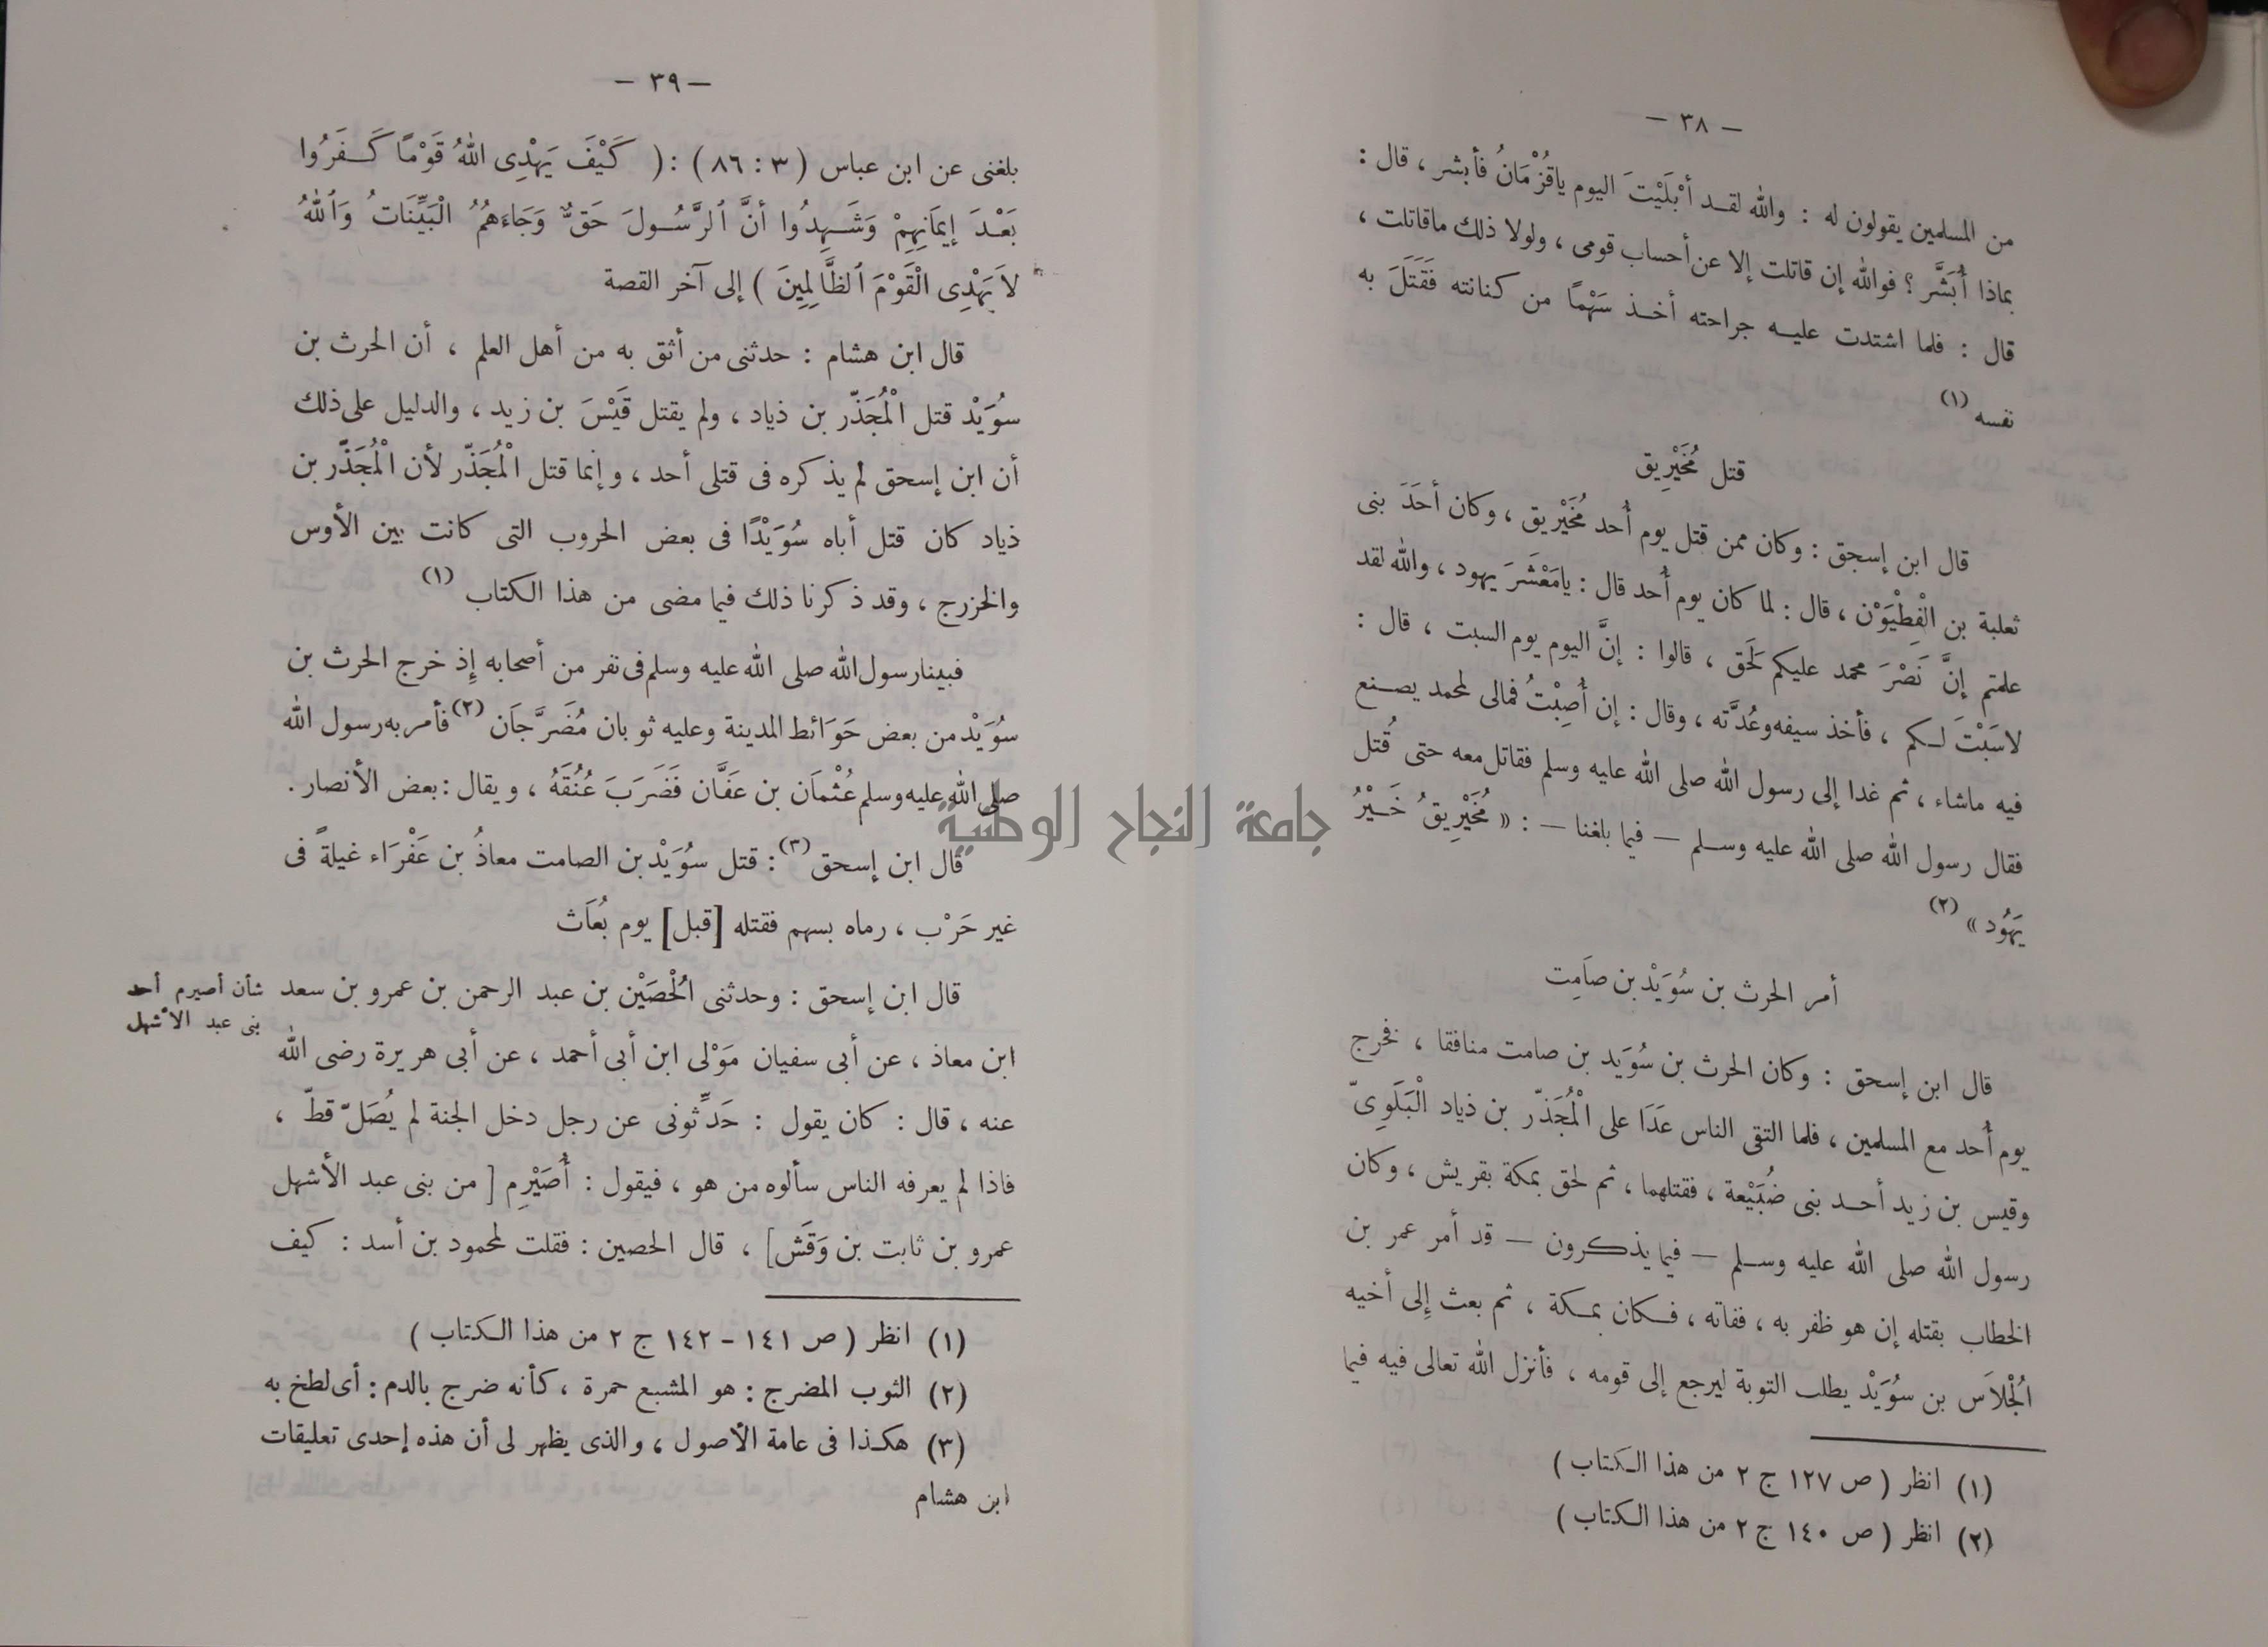 — ٣٨ —
من المسلمين يقولون له : والله لقد أَبْلَيْتَ اليوم ياقُزْمَانُ فأبشر ، قال :
بماذا أُبَشَّر ؟ فوالله إن قاتلت إلا عن أحساب قومى ، ولولا ذلك ماقاتلت ،
قال : فلما اشتدت عليه جراحته أخذ سَهْمًا من كنانته فَقَتَلَ به
نفسه (١)
قتل مُخَيْرِيق
قال ابن إسحق : وكان ممن قتل يوم أُحد مُخَيْرِيق ، وكان أحَدَ بنى
ثعلبة بن الْفِطْيَوْن ، قال : لما كان يوم أُحد قال : يامَعْشَرَ يهود ، والله لقد
علمتم إنَّ نَصْرَ محمد عليكم لَحَق ، قالوا : إنَّ اليوم يوم السبت ، قال :
لاسَبْتَ لكم ، فأخذ سيفه وعُدَّته ، وقال : إن أُصِبْتُ فمالى لمحمد يصنع
فيه ماشاء ، ثم غدا إلى رسول الله صلى الله عليه وسلم فقاتل معه حتى قُتل
فقال رسول الله صلى الله عليه وسلم — فيما بلغنا — : « مُخَيْرِيقُ خَيْرُ
يَهُود » (٢)
أمر الحرث بن سُوَيْد بن صاَمِت
قال ابن إسحق : وكان الحرث بن سُوَيد بن صامت منافقا ، فخرج
يوم أُحد مع المسلمين ، فلما التقى الناس عَدَا على الْمُجَذّر بن ذياد الْبَلَوِىّ
وقيس بن زيد أحد بنى ضُبَيْعة ، فقتلهما ، ثم لحق بمكة بقريش ، وكان
رسول الله صلى الله عليه وسلم — فيما يذكرون — قد أمر عمر بن
الخطاب بقتله إن هو ظفر به ، ففاته ، فكان بمكة ، ثم بعث إلى أخيه
الْجُلاَس بن سُوَيْد يطلب التوبة ليرجع إلى قومه ، فأنزل الله تعالى فيه فيما
(١) انظر ( ص ١٢٧ ج ٢ من هذا الكتاب )
(٢) انظر ( ص ١٤٠ ج ٢ من هذا الكتاب )
— ٣٩ —
بلغنى عن ابن عباس ( ٣ : ٨٦ ) : ( كَيْفَ يَهْدِى اللهُ قَوْمًا كَفَرُوا
بَعْدَ إيمَانِهِمْ وَشَهِدُوا أنَّ ٱلرَّسُولَ حَقٌّ وَجَاءَهُمُ الْبَيِّنَاتُ وَٱللهُ
لاَ يَهْدِى الْقَوْمَ ٱلظَّالِمِينَ ) إلى آخر القصة
قال ابن هشام : حدثنى من أثق به من أهل العلم ، أن الحرث بن
سُوَيْد قتل الْمُجَذّر بن ذياد ، ولم يقتل قَيْسَ بن زيد ، والدليل على ذلك
أن ابن إسحق لم يذكره فى قتلى أحد ، وإنما قتل الْمُجَذّر لأن الْمُجَذّر بن
ذياد كان قتل أباه سُوَيْدًا فى بعض الحروب التى كانت بين الأوس
والخزرج ، وقد ذكرنا ذلك فيما مضى من هذا الكتاب (١)
فبينا رسول الله صلى الله عليه وسلم فى نفر من أصحابه إذ خرج الحرث بن
سُوَيْد من بعض حَوَائط المدينة وعليه ثوبان مُضَرَّجَان (٢) فأمر به رسول الله
صلى الله عليه وسلم عُثْمَان بن عَفَّان فَضَرَبَ عُنُقَهُ ، ويقال : بعض الأنصار .
قال ابن إسحق (٣) : قتل سُوَيْد بن الصامت معاذُ بن عَفْرَاء غيلةً فى
غير حَرْب ، رماه بسهم فقتله [قبل] يوم بُعَاث
قال ابن إسحق : وحدثنى الْحُصَيْن بن عبد الرحمن بن عمرو بن سعد
شأن أصيرم أحد
بنى عبد الأشهل
ابن معاذ ، عن أبى سفيان مَوْلى ابن أبى أحمد ، عن أبى هريرة رضى الله
عنه ، قال : كان يقول : حَدِّثونى عن رجل دخل الجنة لم يُصَلّ قطّ ،
فاذا لم يعرفه الناس سألوه من هو ، فيقول : أُصَيْرِم [ من بنى عبد الأشهل
عمرو بن ثابت بن وَقَش] ، قال الحصين : فقلت لمحمود بن أسد : كيف
(١) انظر ( ص ١٤١ – ١٤٢ ج ٢ من هذا الكتاب )
(٢) الثوب المضرج : هو المشبع حمرة ، كأنه ضرج بالدم : أى لطخ به
(٣) هكذا فى عامة الأصول ، والذى يظهر لى أن هذه إحدى تعليقات
ابن هشام
جامعة النجاح الوطنية